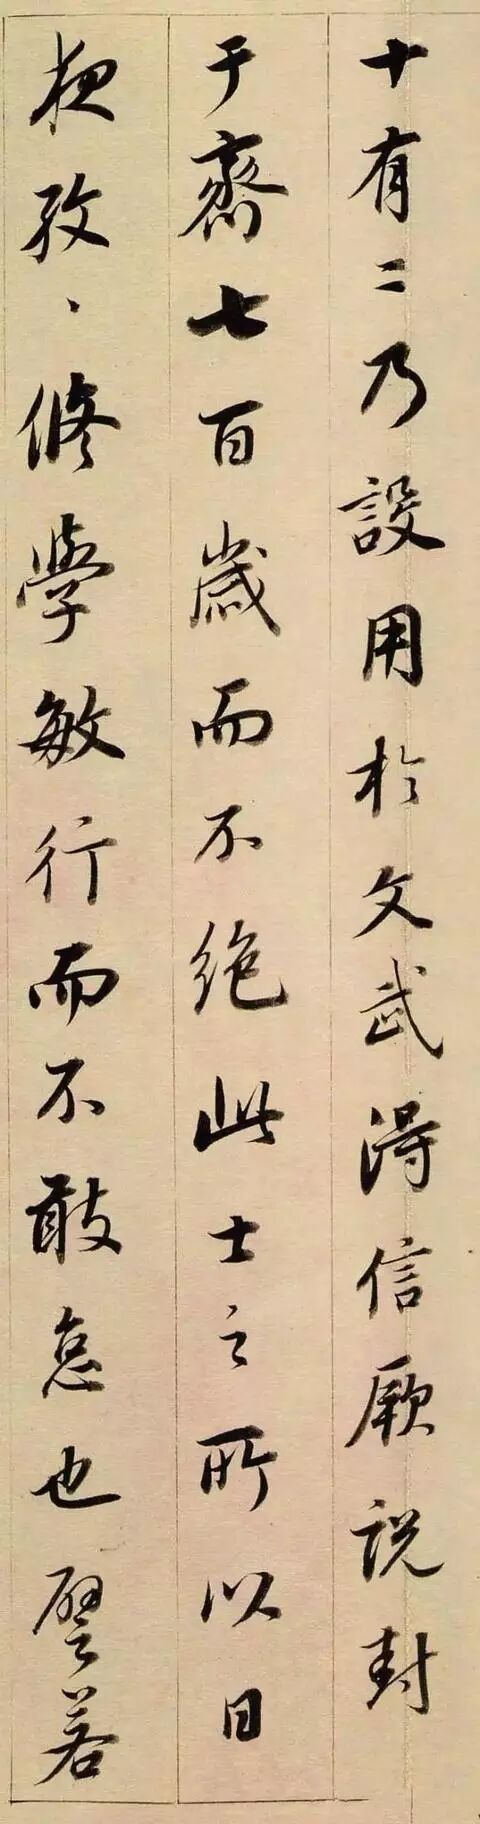 十有二乃設用於文武得信厥說封
于齋七百歲而不絕此士之所以日
夜孜、修學敏行而不敢怠也譬若